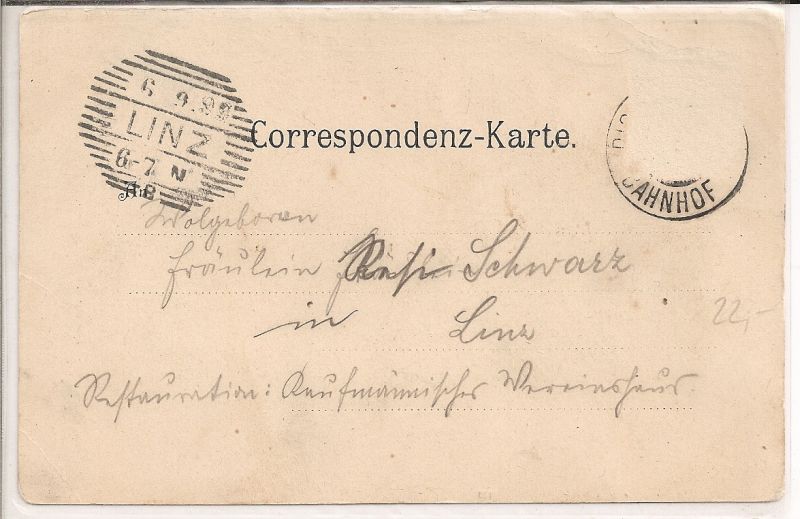 6.9.98
LINZ
6-7 N
Correspondenz-Karte.
BAHNHOF
An
Wolgeboren
Fräulein Resi Schwarz
in Linz
22,-
Restauration: Kaufmännisches Vereinshaus.